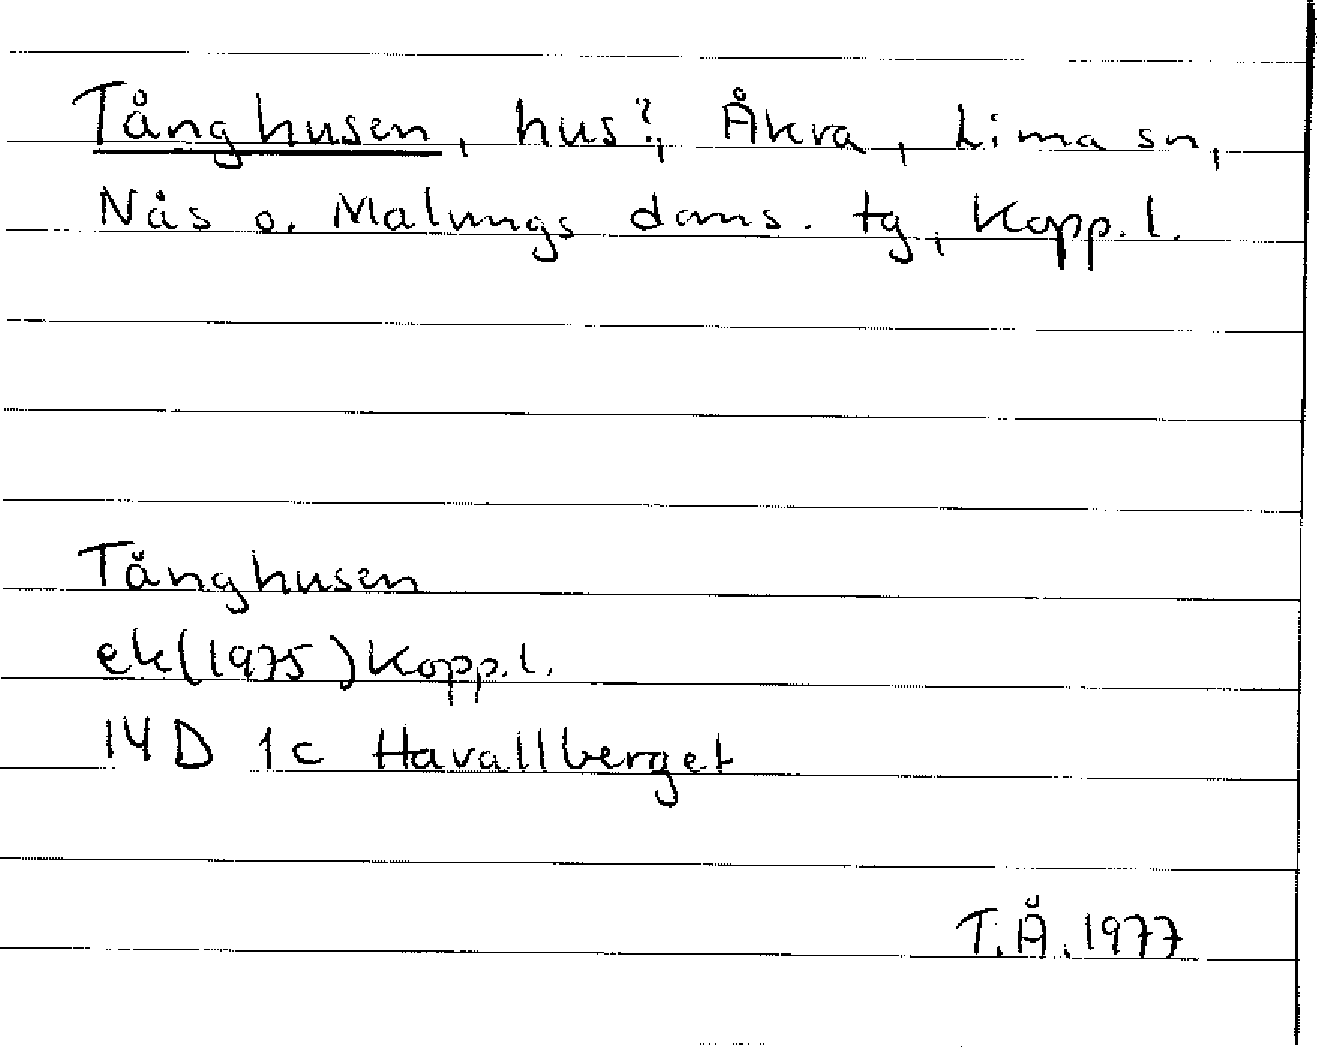 Tånghusen, hus?, Åkra, Lima sn,
Nås o. Malungs doms. tg, Kopp. l.
Tånghusen
ek(1975)Kopp.l.
14D 1c Havallberget
T.Å.1977